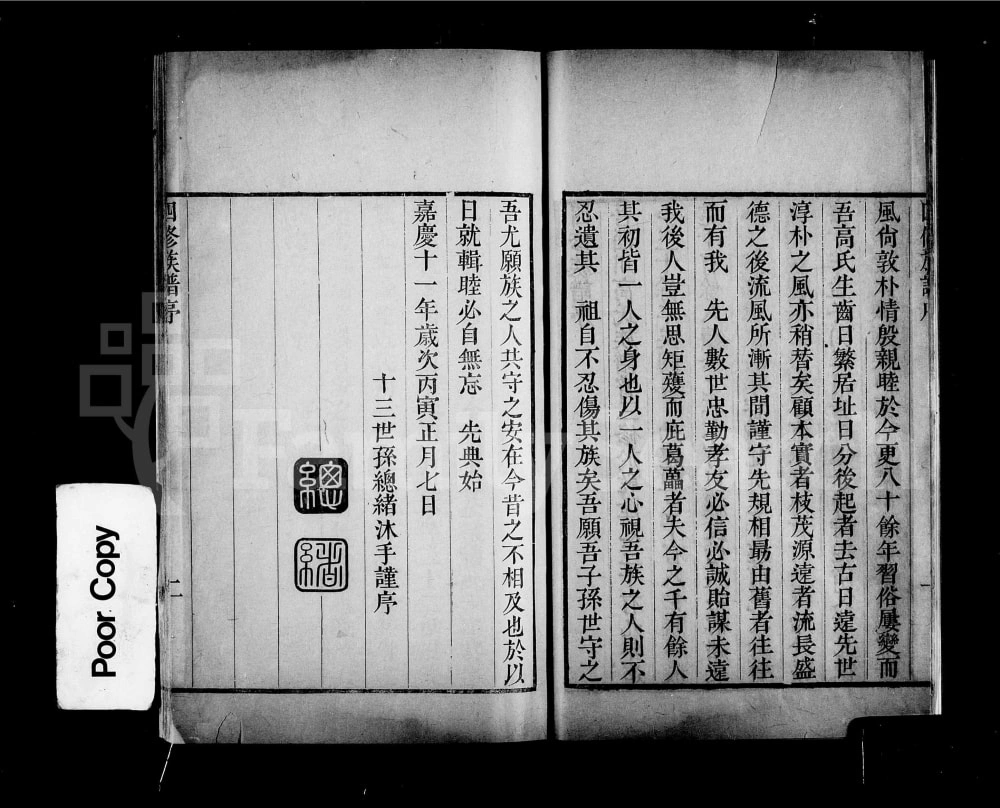 風尙敦朴情殷親睦於今更八十餘年習俗屢變而
吾高氏生齒日繁居址日分後起者去古日遠先世
淳朴之風亦稍替矣顧本實者枝茂源遠者流長盛
德之後流風所漸其間謹守先規相勗由舊者往往
而有我　先人數世忠勤孝友必信必誠貽謀未遠
我後人豈無思矩矱而庇葛藟者夫今之千有餘人
其初皆一人之身也以一人之心視吾族之人則不
忍遺其　祖自不忍傷其族矣吾願吾子孫世守之
一
吾尤願族之人共守之安在今昔之不相及也於以
日就輯睦必自無忘　先典始
嘉慶十一年歲次丙寅正月七日
十三世孫總緒沐手謹序
總
緒
四修族譜序
二
Poor Copy